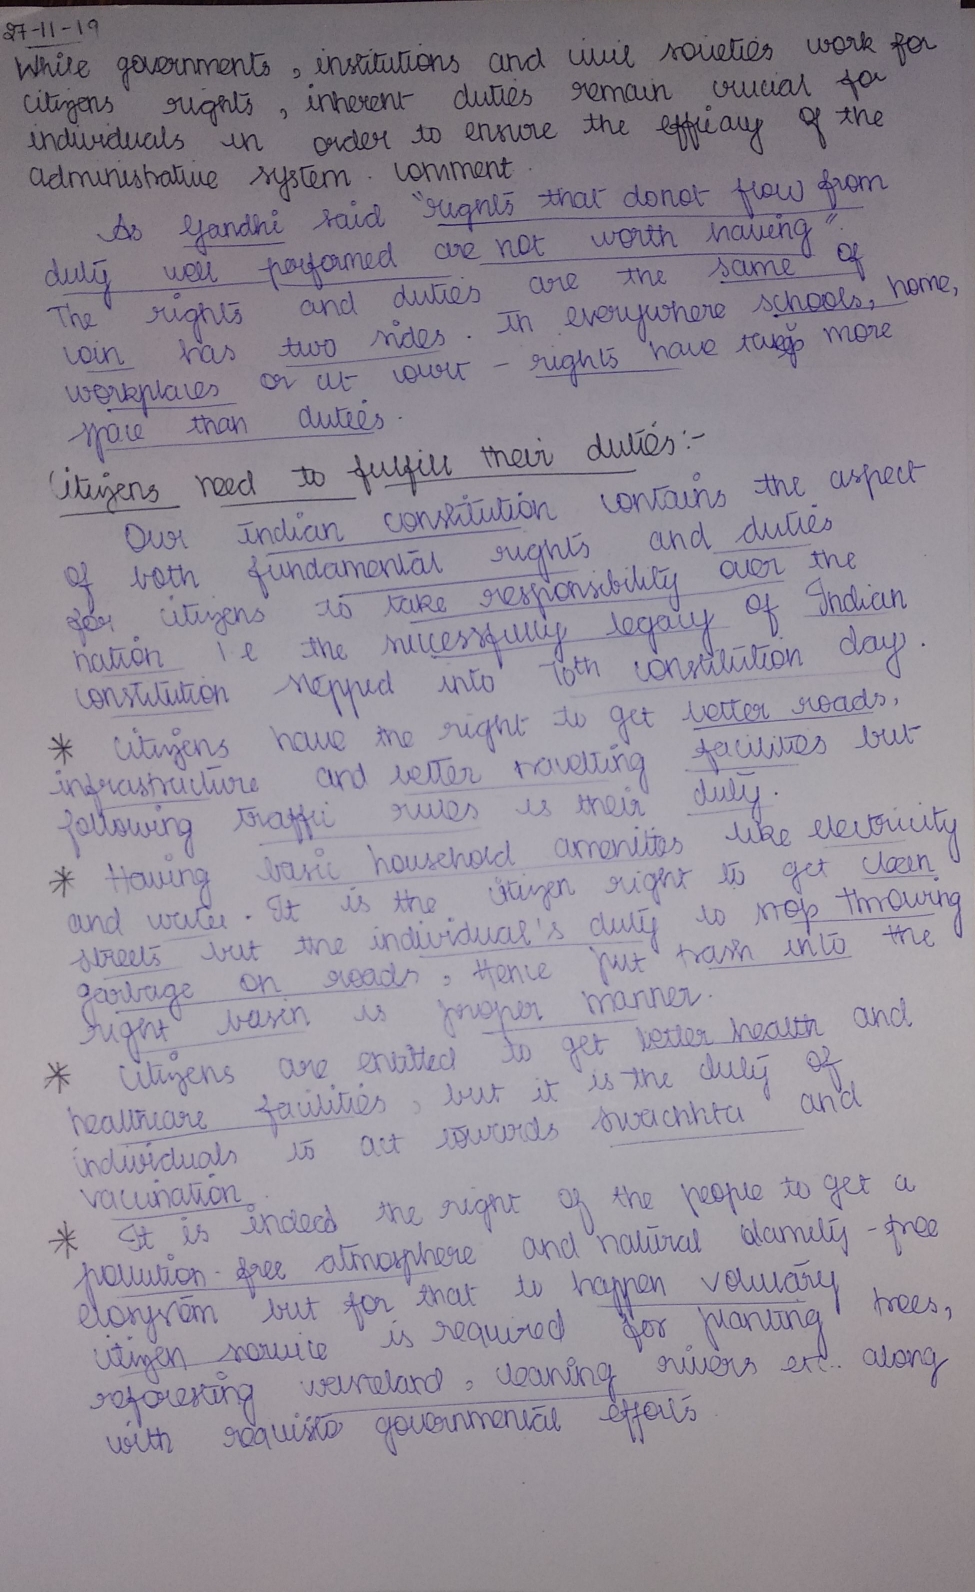 27-11-19
While governments, institutions and civil societies work for
citizens rights, inherent duties remain crucial for
individuals in order to ensure the efficacy of the
administrative system. comment.
As Gandhi said "rights that donot flow from
duty well performed are not worth having".
The rights and duties are the same of
coin has two sides. In everywhere schools, home,
workplaces or at court - rights have more
space than duties.
Citizens need to fulfill their duties:-
Our indian constitution contains the aspect
of both fundamental rights and duties
for citizens to take responsibility over the
nation i.e the successfully legacy of Indian
constitution stepped into 70th constitution day.
* Citizens have the right to get better roads,
infrastructure and better travelling facilities but
following traffic rules is their duty.
* Having basic household amenities like electricity
and water. It is the citizen right to get clean
streets but the individual's duty to stop throwing
garbage on roads, Hence put trash into the
right basin is proper manner.
* Citizens are entitled to get better health and
healthcare facilities, but it is the duty of
individuals to act towards swachhta and
vaccination.
* It is indeed the right of the people to get a
pollution-free atmosphere and natural calamity-free
but for that to happen voluntary
citizen service is required for planting trees,
reforesting wasteland, cleaning rivers etc.. along
with requisite governmental efforts.